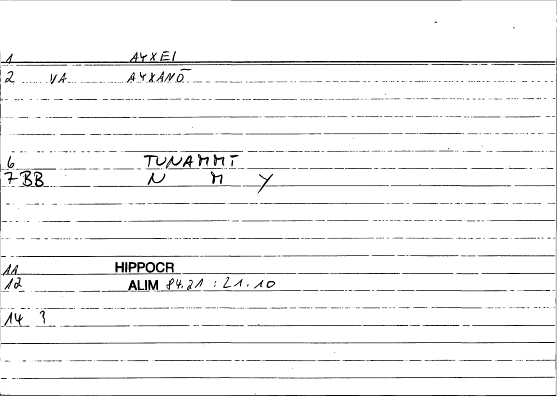 1 AYXEI
2 VA AYXANŌ
6 TUNAMMT
7 BB N M Y
11 HIPPOCR
12 ALIM 84.21 : 21.10
14 ?